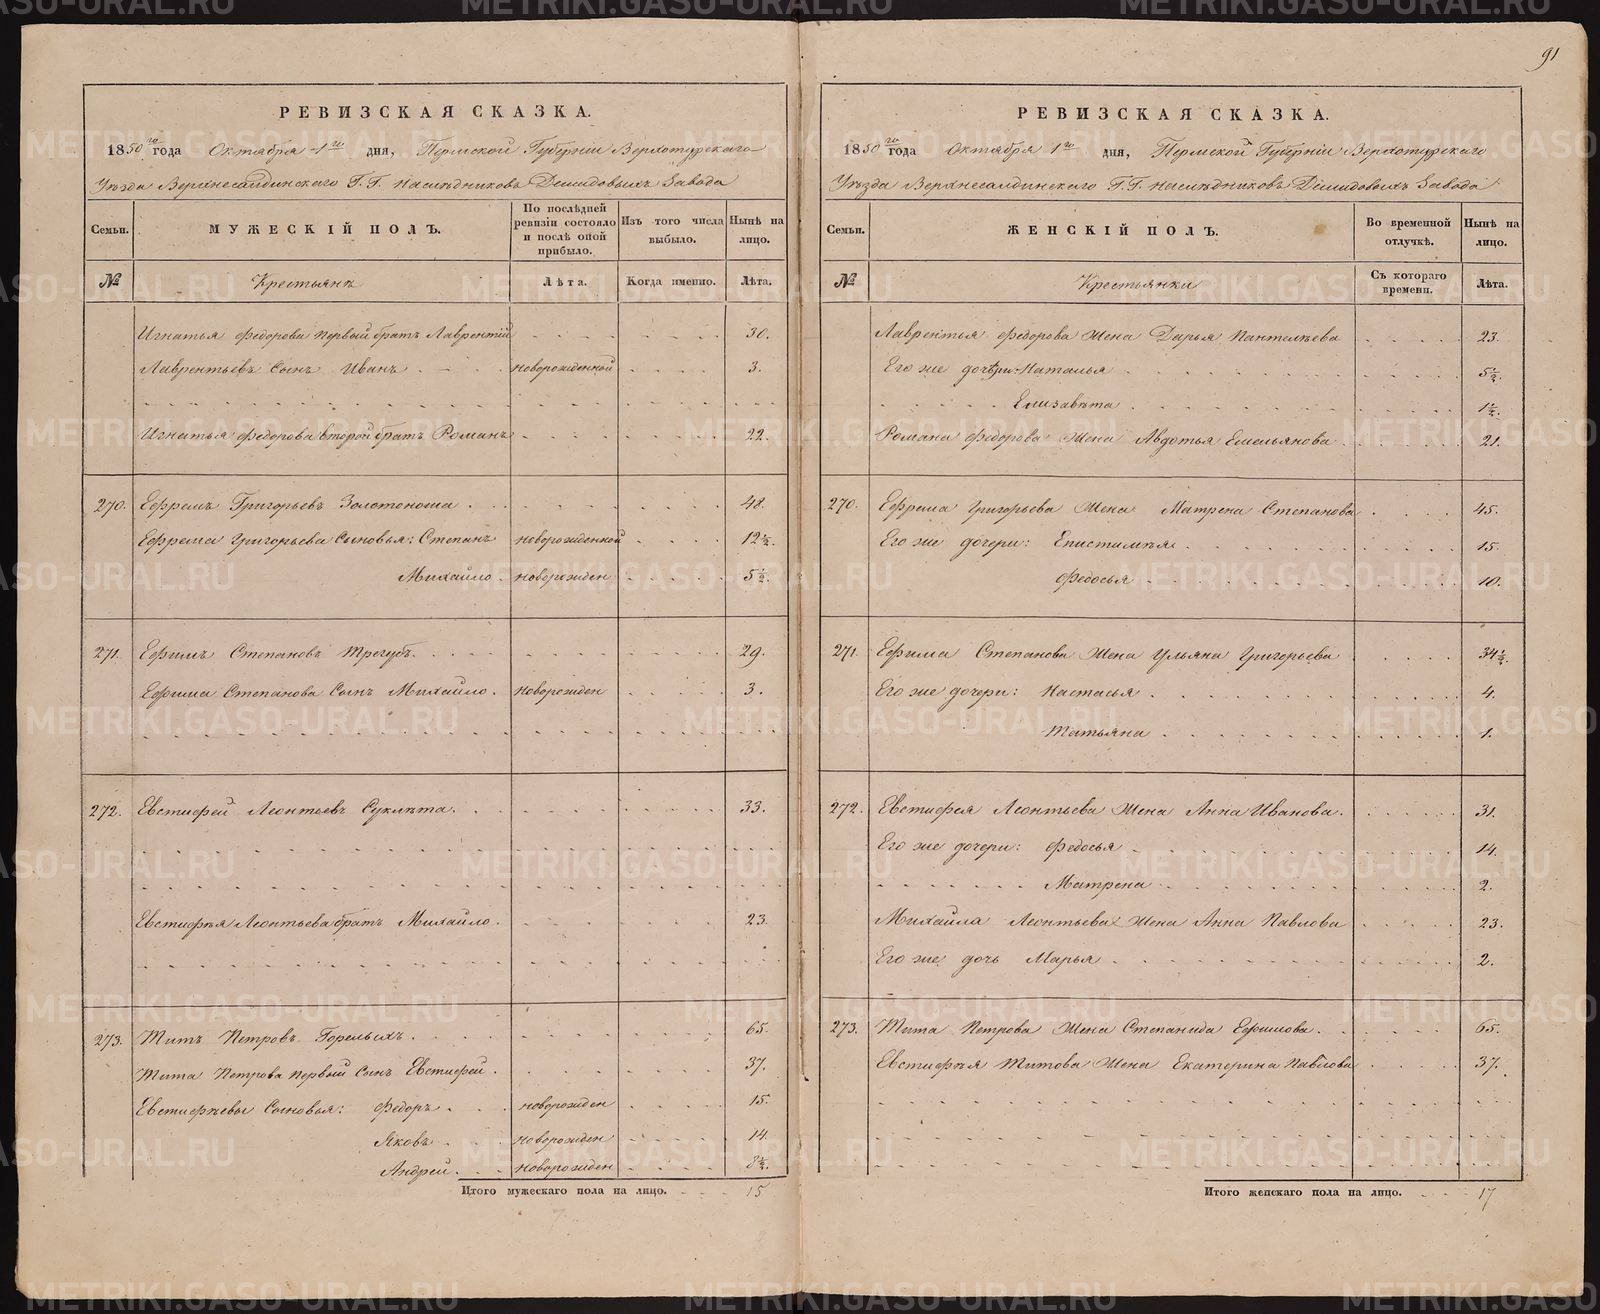 91
РЕВИЗСКАЯ СКАЗКА.
1850го года Октября 1го дня, Пермской Губерніи Верхотурскаго
Уѣзда Верхнесалдинскаго Г.Г. Наслѣдниковъ Демидовыхъ Завода
Семьи.
МУЖЕСКІЙ ПОЛЪ.
По послѣдней ревизіи состояло и послѣ оной прибыло.
Изъ того числа выбыло.
Нынѣ на лицо.
№
Крестьянъ
Лѣта.
Когда именно.
Лѣта.
Игнатья Федорова первый братъ Лаврентій 30.
Лаврентьевъ сынъ Иванъ новорожденной 3.
Игнатья Федорова второй братъ Романъ 22.
270. Ефремъ Григорьевъ Золотоноша 48.
Ефрема Григорьева сыновья: Степанъ новорожденной 12½.
Михайло новорожден 5½.
271. Ефимъ Степановъ Трегубъ. 29.
Ефима Степанова сынъ Михайло. новорожден 3.
272. Евстифей Леонтьевъ Суклѣта. 33.
Евстифѣя Леонтьева братъ Михайло. 23.
273. Титъ Петровъ Горелыхъ. 65.
Тита Петрова первый сынъ Евстифей. 37.
Евстифѣевы сыновья: Федоръ. новорожден 15.
Яковъ новорожден 14.
Андрей. новорожден 3½.
Итого мужескаго пола на лицо. 15
РЕВИЗСКАЯ СКАЗКА.
1850го года Октября 1го дня, Пермской Губерніи Верхотурскаго
Уѣзда Верхнесалдинскаго Г.Г. Наслѣдниковъ Демидовыхъ Завода
Семьи.
ЖЕНСКІЙ ПОЛЪ.
Во временной отлучкѣ.
Нынѣ на лицо.
№
Крестьянки
Съ котораго времени.
Лѣта.
Лаврентья Федорова жена Дарья Пантелѣева 23.
Его же дочери: Наталья 5½.
Елизавѣта 1½.
Романа Федорова жена Авдотья Емельянова 21.
270. Ефрема Григорьева жена Матрена Степанова 45.
Его же дочери: Епистимѣя 15.
Федосья 10.
271. Ефима Степанова жена Ульяна Григорьева 34½.
Его же дочери: Настасья 4.
Татьяна 1.
272. Евстифея Леонтьева жена Анна Иванова. 31.
Его же дочери: Федосья 14.
Матрена 2.
Михайла Леонтьева жена Анна Павлова 23.
Его же дочь Марья 2.
273. Тита Петрова жена Степанида Ефимова. 65.
Евстифѣя Титова жена Екатерина Павлова 37.
Итого женскаго пола на лицо. 17
METRIKI.GASO-URAL.RU